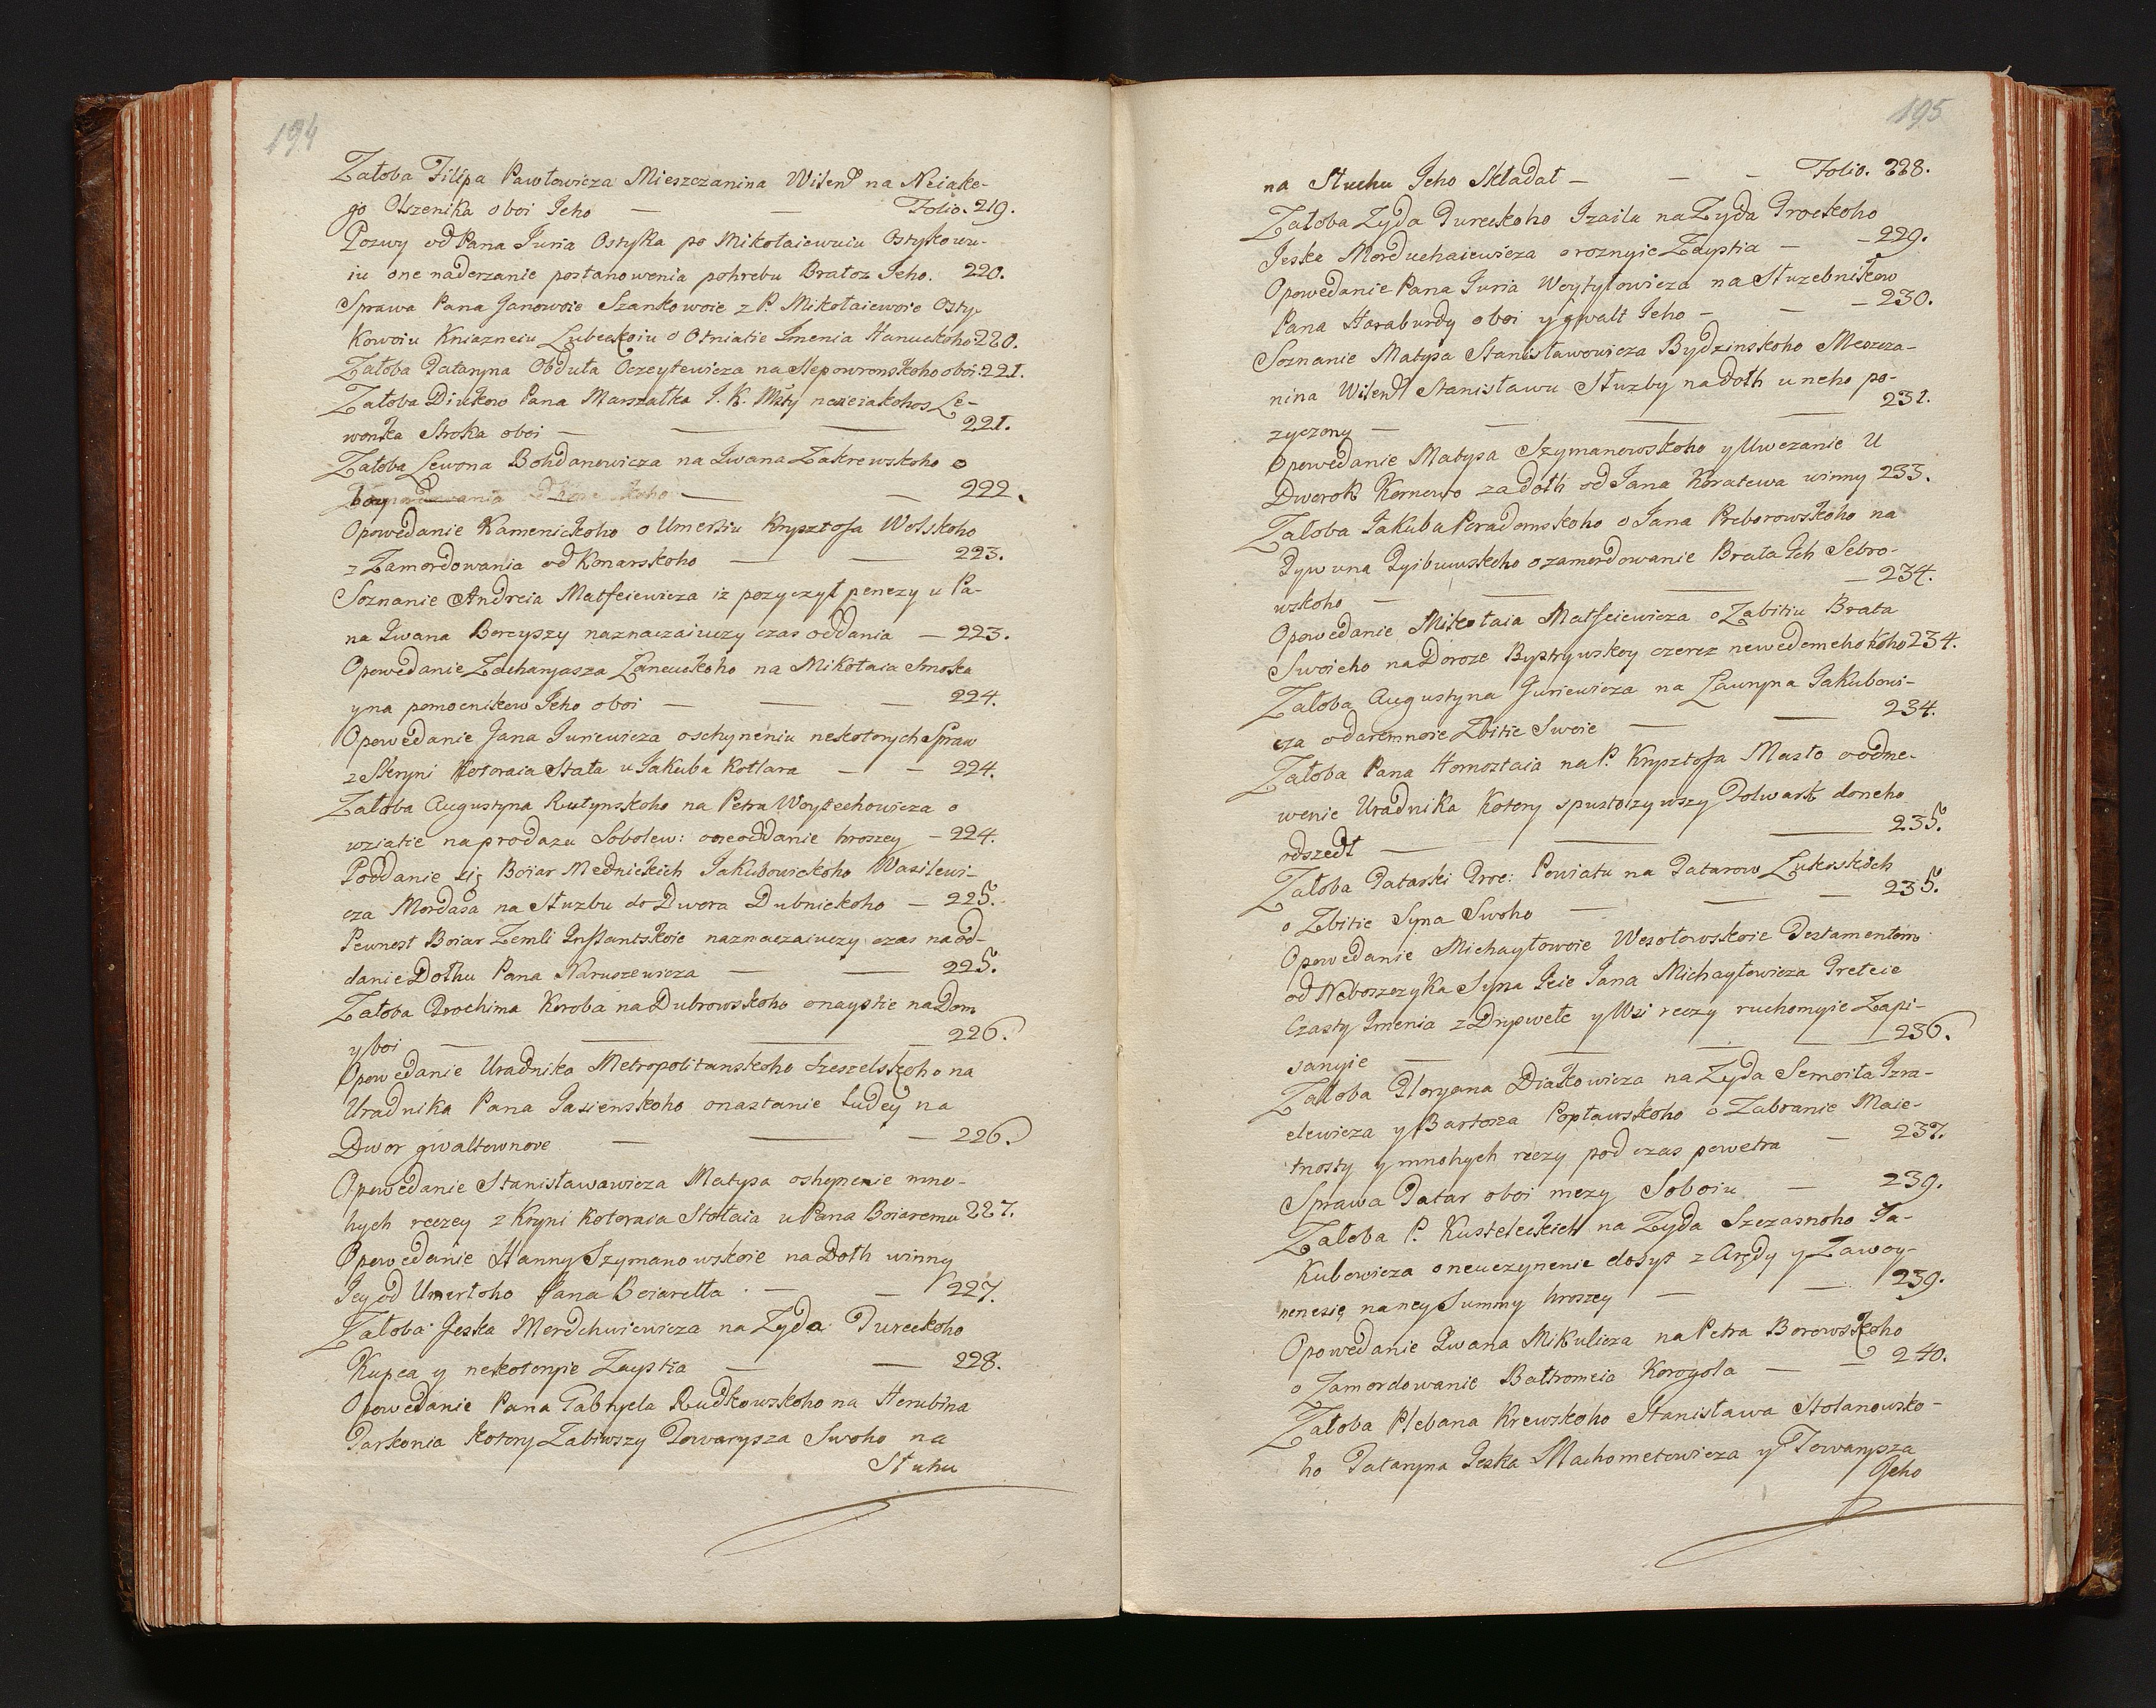 194
Załoba Filipa Pawłowicza Mieszczanina Wilen na Neiake-
go Olszenika o boi Jeho — — Folio. 219.
Pozwy od Pana Juria Ostyka po Mikołaiewuiu Ostykowu-
iu one naderzanie postanowenia pohrebu Bratoz Jeho. 220.
Sprawa Pana Janowoie Szankowoie z P. Mikołaiewoie Osty-
kowoiu Kniazneiu Lubeckoiu o Otniatie Imenia Hanuckoho 220.
Załoba Tataryna Obduła Oczeytewicza na Slepowronskoho oboi. 221.
Załoba Diukow Pana Marszałka J. K. Msty na neiakohos Le-
wonka Stroka oboi — — — 221.
Załoba Lewona Bohdanowicza na Iwana Zakrewskoho o
— — 222.
Opowedanie Kamenickoho o Umerłiu Krysztofa Wolskoho
z Zamordowania od Konarskoho — — 223.
Soznanie Andreia Matfeiewicza iz pozyczył penezy u Pa-
na Iwana Borcyszy naznaczaiuczy czas oddania — 223.
Opowedanie Zacharyasza Laneuckoho na Mikołaia Smoska
y na pomocnikow Jeho oboi — — — 224.
Opowedanie Jana Juriewicza oschyneniu nekotorych Spraw
z Skryni kotoraia Stała u Jakuba Kotlara — — 224.
Załoba Augustyna Rutynskoho na Petra Woytechowicza o
wziatie na prodazu Sobolew: oneoddanie hroszey — 224.
Poddanie się Boiar Mednickich Jakubowickoho Wasilewi-
cza Mordasa na Służbu do Dwora Dubnickoho — 225.
Pewnost Boiar Zemli Inflantskoie naznaczaiuczy czas na od-
danie Dołhu Pana Naruszewicza — — 225.
Załoba Trochima Koroba na Dubrowskoho onaystie na Dom
y boi — — — — 226.
Opowedanie Uradnika Metropolitanskoho Szeszelskoho na
Uradnika Pana Jasienskoho onastanie ludey na
Dwor gwaltownoie — — — 226.
Opowedanie Stanisławawicza Matysa oshynenie mno-
hych reczey z Kryni kotoraia Stołaia u Pana Boiaremu 227.
Opowedanie Hanny Szymanowskoie na Dołh winny
Jey od Umerłoho Pana Boiarella. — — 227.
Załoba Jeska Merdchuiewicza na Zyda Tureckoho
Kupca y nekotoryie Zaystia — — 228.
Opowedanie Pana Gabryela Rudkowskoho na Herubina
Tarkonia kotory Zabiwszy Towarysza Swoho na
Słuhu
195
na Słuchu Jeho Składał — — — Folio. 228.
Załoba Zyda Tureckoho Izaila na Zyda Trockoho
Jeska Morduchaiewicza o roznyie Zaystia — — 229.
Opowedanie Pana Juria Woytyłowicza na Słuzebnikow
Pana Haraburdy oboi y gwałt Jeho — — — 230.
Soznanie Matysa Stanisławowicza Bydzinskoho Meszcza-
nina Wilen Stanisławu Słuzby na dołh u neho po-
zyczony — — — — 231.
Opowedanie Matysa Szymanowskoho y Uwezanie U
Dworok Kornewo za dołh od Jana Koratewa winny 233.
Załoba Jakuba Peradomskoho o Jana Preborowskoho na
Tywuna Tyibuwskoho ozamordowanie Brata Ich Sebro-
wskoho — — — — 234.
Opowedanie Mikołaia Matfeiewicza o Zabitiu Brata
Swoieho na Doroze Bystryuskoy czerez newedemohokoho 234.
Załoba Augustyna Juriewicza na Lawryna Jakubowi-
cza odaremnoie Zbitie Swoie — — 234.
Załoba Pana Hornostaia na P. Krysztofa Masło oodne-
wenie Uradnika kotory spustoszywszy Folwark doneho
odszedł — — — 235.
Załoba Tatarki Troc: Powiatu na Tatarow Lukiskich
o Zbitie Syna Swoho — — — 235.
Opowedanie Michayłowoie Wesołowskoie Testamentom
od Neboszczyka Syna Jeie Jana Michayłowicza Treteie
Czasty Imenia z Dryswete y Wsi reczy ruchomyie Zapi-
sanyie — — — — 236.
Załoba Floryana Diakowicza na Zyda Semoiła Izra-
elewicza y Bartosza Popławskoho o Zabranie Maie-
tnosty y mnohych rzeczy pod czas powetra — 237.
Sprawa Tatar oboi mezy Soboiu — 239.
Załoba P. Kusteleckich na Zyda Szczasnoho Ja-
kubowicza oneuczynenie dosyt z Arędy y Zawoy-
nenesię na ney Summy hroszey — — 239.
Opowedanie Iwana Mikulicza na Petra Borowskoho
o Zamordowanie Bałtromeia Korogola — — 240.
Załoba Plebana Krewskoho Stanisława Stolanowsko-
ho Tataryna Jeska Machometowicza y Towarysza
Jeho